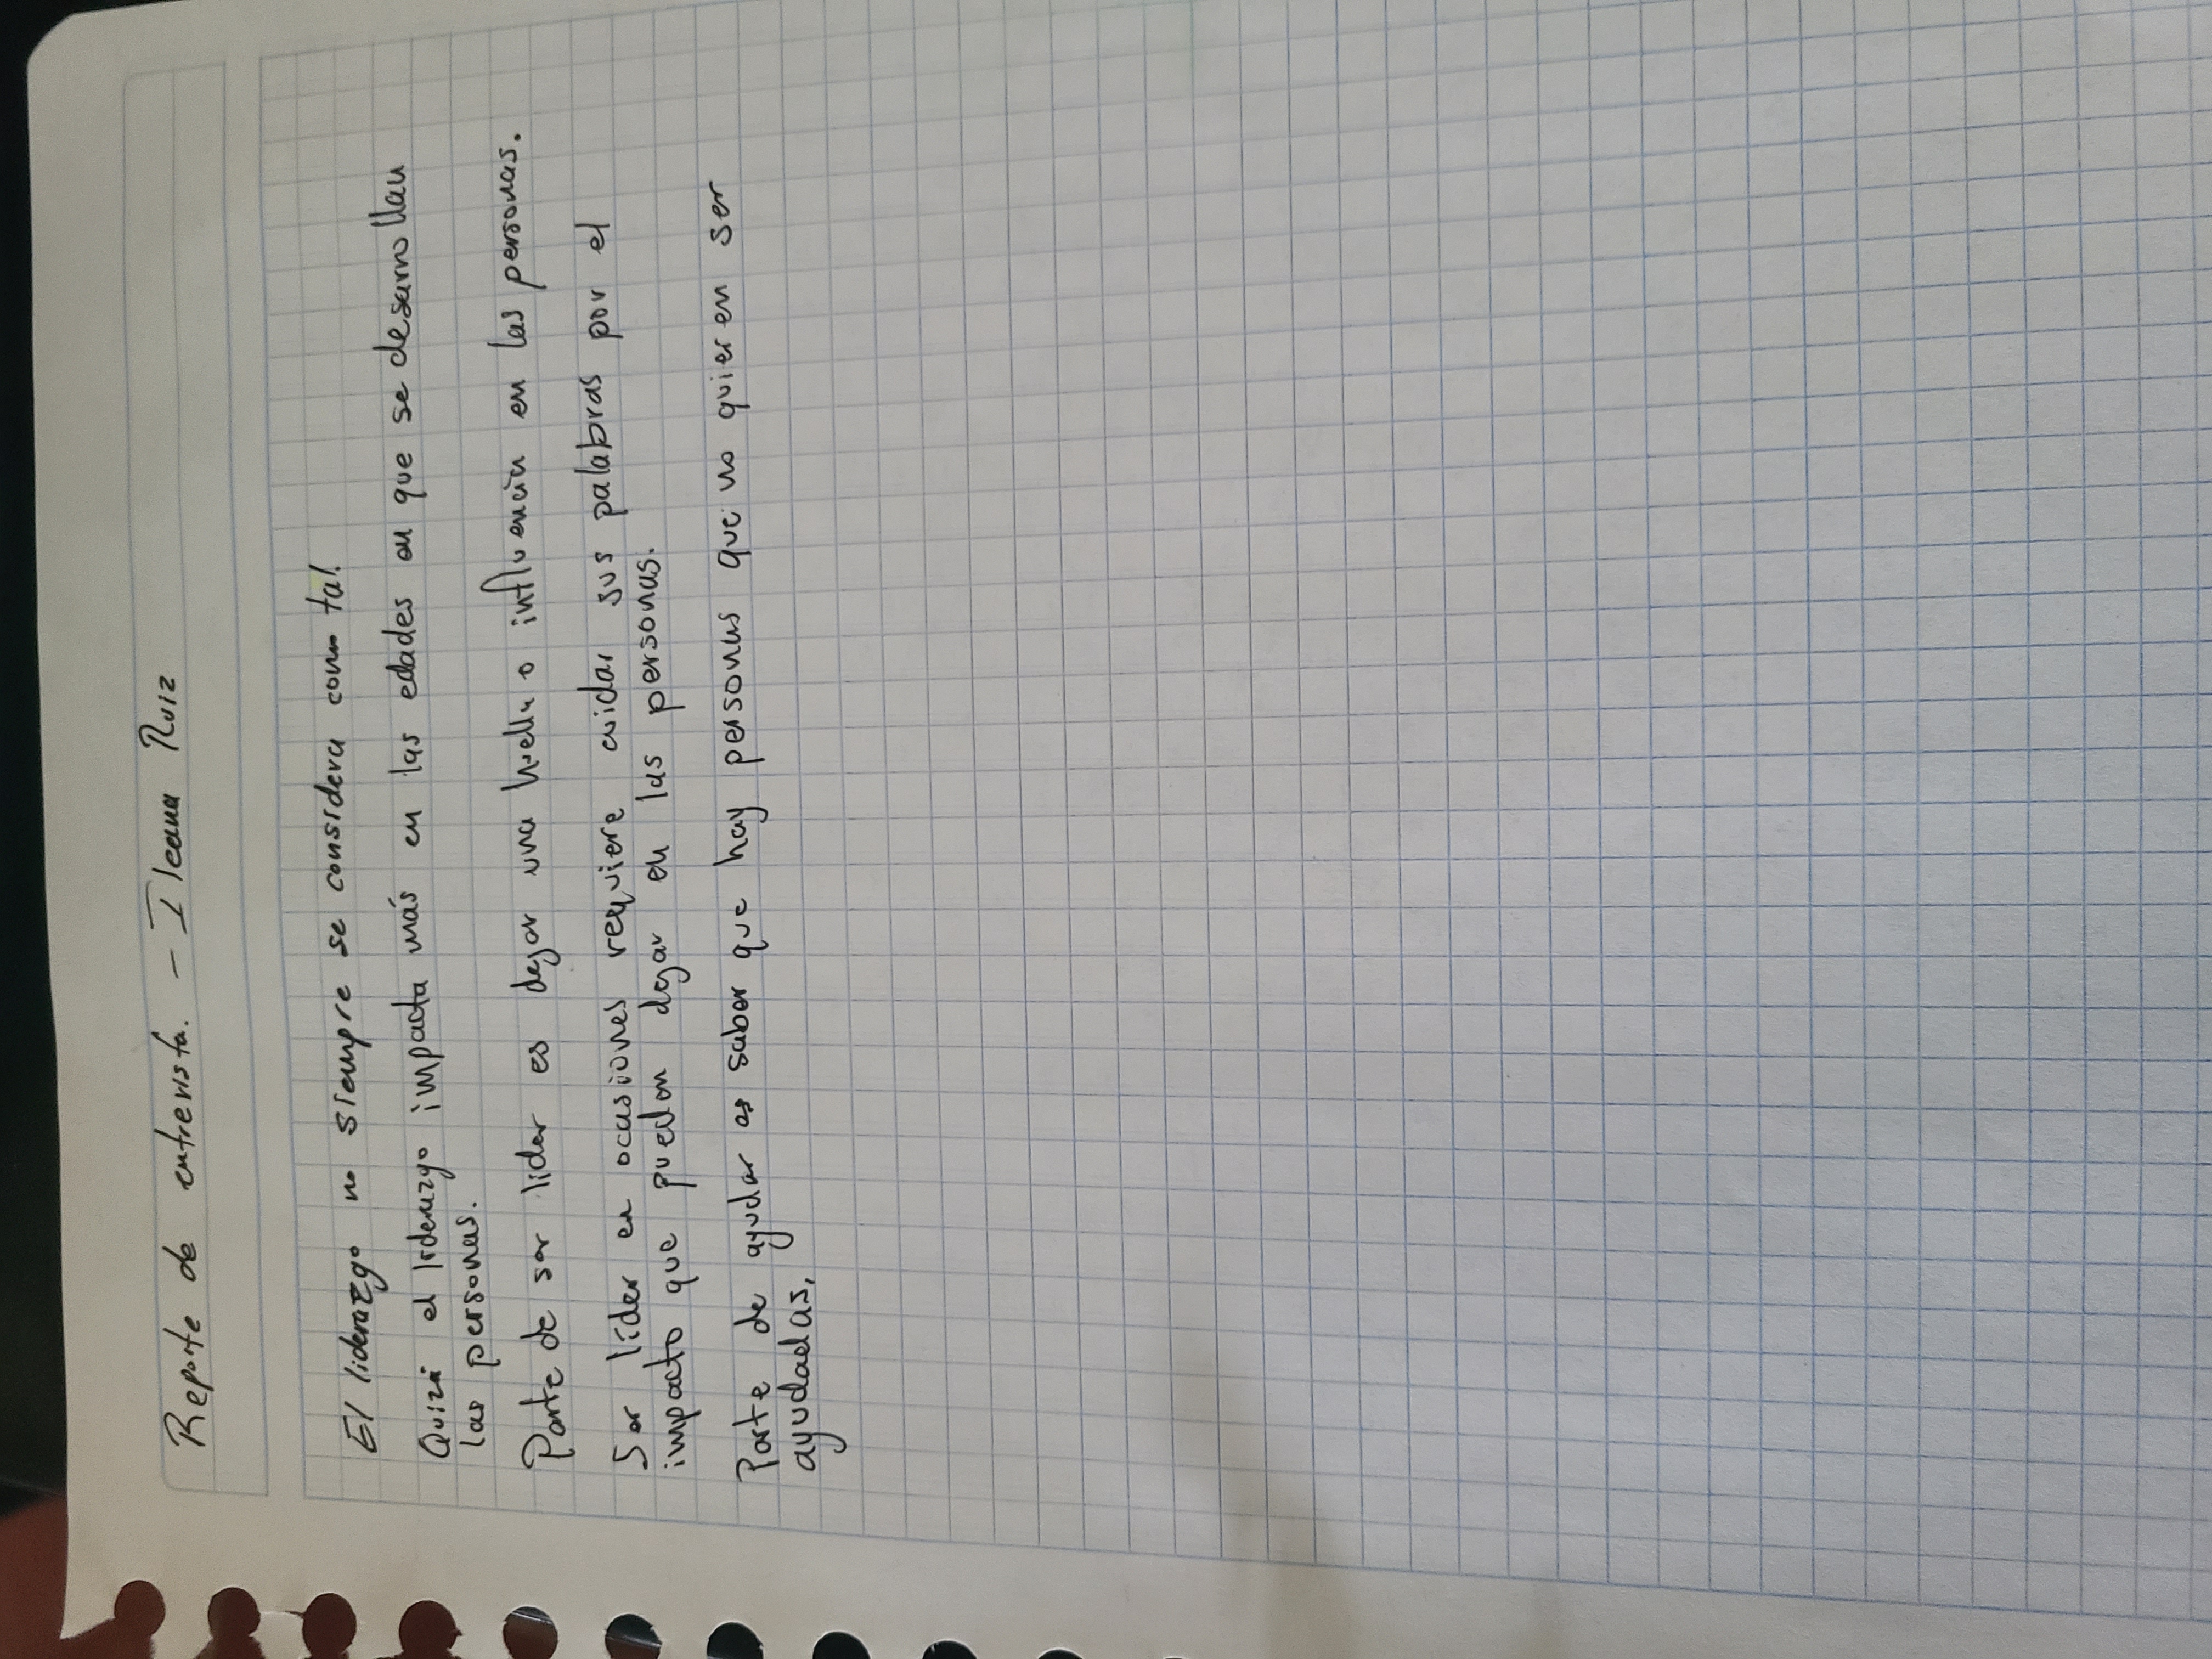 Reporte de entrevista. - Ileana Ruiz
El liderazgo no siempre se considera como tal.
Quizá el liderazgo impacta más en las edades en que se desarrollan
las personas.
Parte de ser lider es dejar una huella o influencia en las personas.
Ser líder en ocasiones requiere cuidar sus palabras por el
impacto que pueden dejar en las personas.
Parte de ayudar es saber que hay personas que no quieren ser
ayudadas.